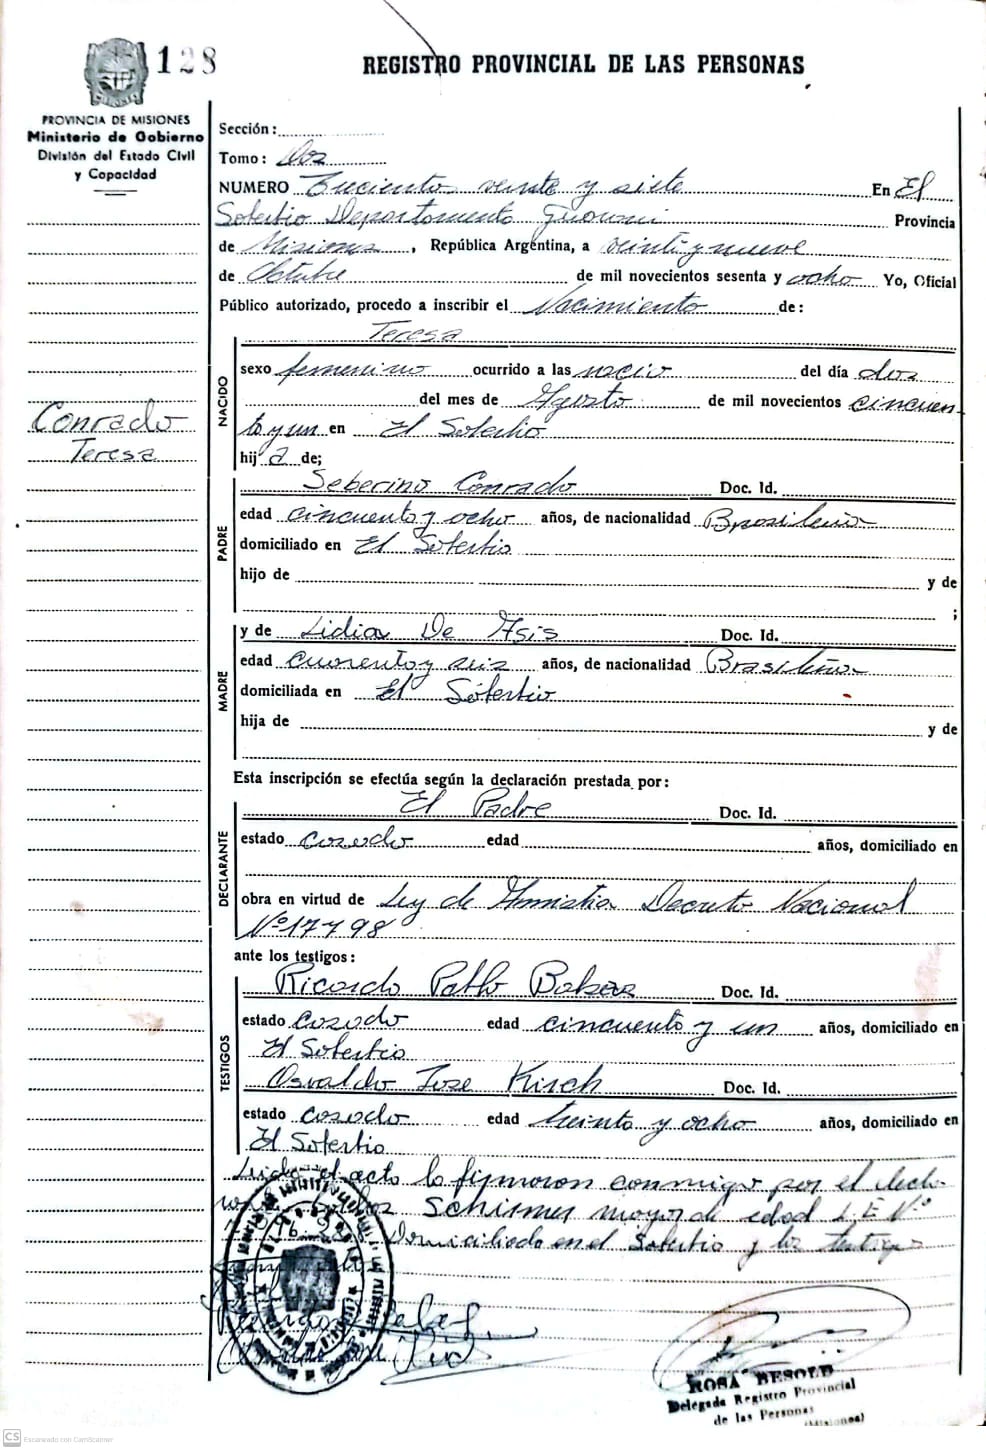 128
REGISTRO PROVINCIAL DE LAS PERSONAS
PROVINCIA DE MISIONES
Ministerio de Gobierno
División del Estado Civil
y Capacidad
Sección:
Tomo: Dos
NUMERO Treciento veinte y siete En El
Soberbio Departamento Guarani Provincia
de Misiones, República Argentina, a veinti y nueve
de Octubre de mil novecientos sesenta y ocho Yo, Oficial
Público autorizado, procedo a inscribir el Nacimiento de:
Teresa
NACIDO
sexo femenino ocurrido a las nacio del día dos
del mes de Agosto de mil novecientos cincuen-
ta y un en El Soberbio
hija de;
Conrado
Teresa
PADRE
Seberino Conrado Doc. Id.
edad cincuenta y ocho años, de nacionalidad Brasileña
domiciliado en El Soberbio
hijo de y de
;
MADRE
y de Lidia De Asis Doc. Id.
edad cuarenta y seis años, de nacionalidad Brasileña
domiciliada en El Soberbio
hija de y de
Esta inscripción se efectúa según la declaración prestada por:
DECLARANTE
El Padre Doc. Id.
estado casado edad años, domiciliado en
obra en virtud de Ley de Amnistia Decreto Nacional
Nº 17798
ante los testigos:
TESTIGOS
Ricardo Pablo Doc. Id.
estado casado edad cincuenta y un años, domiciliado en
El Soberbio
Osvaldo Jose Kirch Doc. Id.
estado casado edad treinta y ocho años, domiciliado en
El Soberbio
el acto lo firmaron conmigo por el decla-
mayor de edad L.E Nº
Domiciliado en el Soberbio y los testigos
ROSA BESOLD
Delegada Registro Provincial
de las Personas
(Misiones)
CS Escaneado con CamScanner